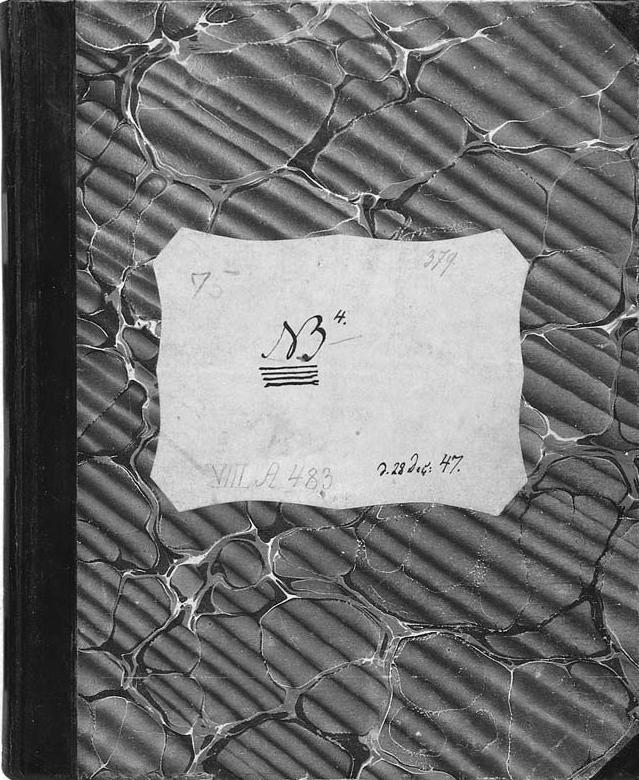 75 379
NB 4.
VIII A 483 d. 28 Dec: 47.